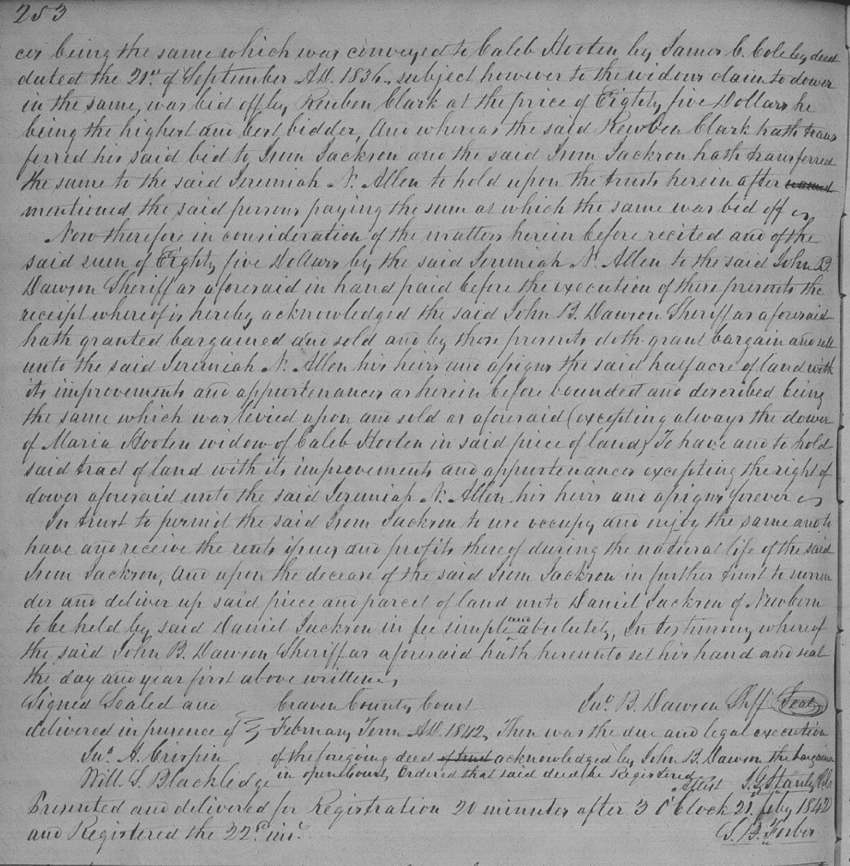 253
ces being the same which was conveyed to Caleb Hooten by James C. Cole by deed
dated the 21st of September AD. 1836, subject however to the widows claim to dower
in the same, was bid off by Reuben Clark at the price of Eighty five Dollars he
being the highest and best bidder, And whereas the said Rewben Clark hath trans
ferred his said bid to Isom Jackson and the said Isom Jackson hath transferred
the same to the said Jeremiah N. Allen to hold upon the trusts herein after
mentioned the said persons paying the sum at which the same was bid off
Now therefore in consideration of the matters herein before recited and of the
said sum of Eighty five Dollars by the said Jeremiah N. Allen to the said John B.
Dawson Sheriff as aforesaid in hand paid before the execution of these presents the
receipt whereof is hereby acknowledged the said John B. Dawson Sheriff as aforesaid
hath granted bargained and sold and by these presents doth grant bargain and sell
unto the said Jeremiah N. Allen his heirs and assigns the said half acre of land with
its improvements and appurtenances as herein before bounded and described being
the same which was levied upon and sold as aforesaid (excepting always the dower
of Maria Hooten widow of Caleb Hooten in said piece of land) To have and to hold
said tract of land with its improvements and appurtenances excepting the right of
dower aforesaid unto the said Jeremiah N. Allen his heirs and assigns forever
In trust to permit the said Isom Jackson to use occupy and enjoy the same and to
have and receive the rents issues and profits thereof during the natural life of the said
Isom Jackson, And upon the decease of the said Isom Jackson in further trust to surren
der and deliver up said piece and parcel of land unto Daniel Jackson of Newbern
to be held by said Daniel Jackson in fee simple and absolutely, In testimony whereof
the said John B. Dawson Sheriff as aforesaid hath hereunto set his hand and seal
the day and year first above written,
Signed Sealed and Craven County Court Jno. B. Dawson Shff Seal
delivered in presence of February Term AD. 1842, Then was the due and legal execution
Jno. A. Crispin of the foregoing deed of trust acknowledged by John B. Dawson the bargainor
Will. S. Blackledge in open Court, Ordered that said deed be Registered
Attest J. G. Stanly Clk
Presented and delivered for Registration 20 minutes after 3 O'Clock 21. Feby 1842
and Registered the 22nd inst. S. B. Forbes